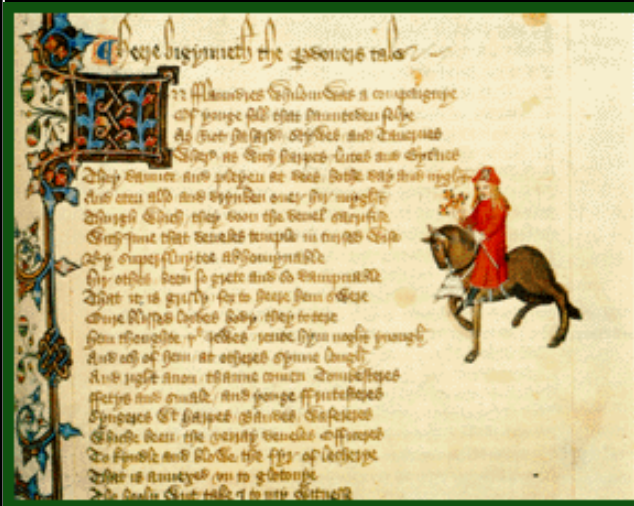 Heere bigynneth the Pdoners tale
In fflaundres whilom was a compaignye
Of yonge folk that haunteden folye
As Riot hasard stywes and Tauernes
Wher as with harpes lutes and Gyternes
They daunce and pleyen at dees bothe day and nyght
And eten also and drynken ouer hir myght
Thurgh which they doon the deuel sacrifise
With Inne that deueles temple in cursed wise
By superfluytee abhomynable
Hir othes been so grete and so dampnable
That it is grisly for to heere hem swere
Oure blissed lordes body they to tere
Hem thoughte þt Iewes rente hym noght ynough
And ech of hem at otheres synne lough
And right anon thanne comen Tombesteres
ffetys and smale and yonge ffrutesteres
Syngeres wt harpes Baudes wafereres
Whiche been the verray deueles Officeres
To kyndle and blowe the fyr of lecherye
That is annexed vn to glotonye
The hooly writ take I to my witnesse